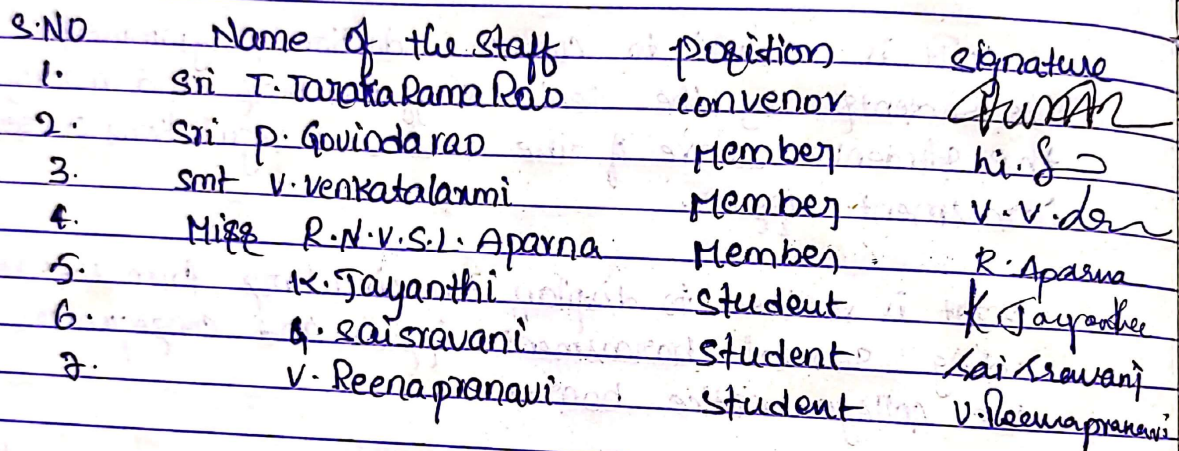 S.NO Name of the Staff position signature
1. Sri T. TarakaRamaRao convenor
2. Sri P. Govindarao Member
3. Smt V. Venkatalaxmi Member V.V.
4. Miss R.N.V.S.L. Aparna Member R. Aparna
5. K. Jayanthi Student K Jayanthi
6. G. Saisravani Student Sai Sravani
7. V. Reenapranavi Student V. Reenapranavi